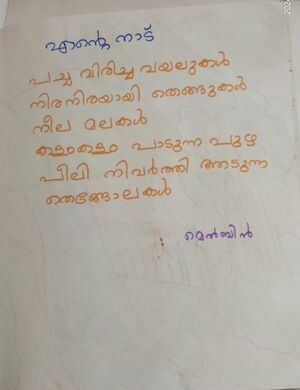 എന്റെ നാട്
പച്ച വിരിച്ച വയലുകൾ
നിരനിരയായി തെങ്ങുകൾ
നീല മലകൾ
കളംകളം പാടുന്ന പുഴ
പീലി നിവർത്തി ആടുന്ന
തെങ്ങോലകൾ
മെൻബിൻ